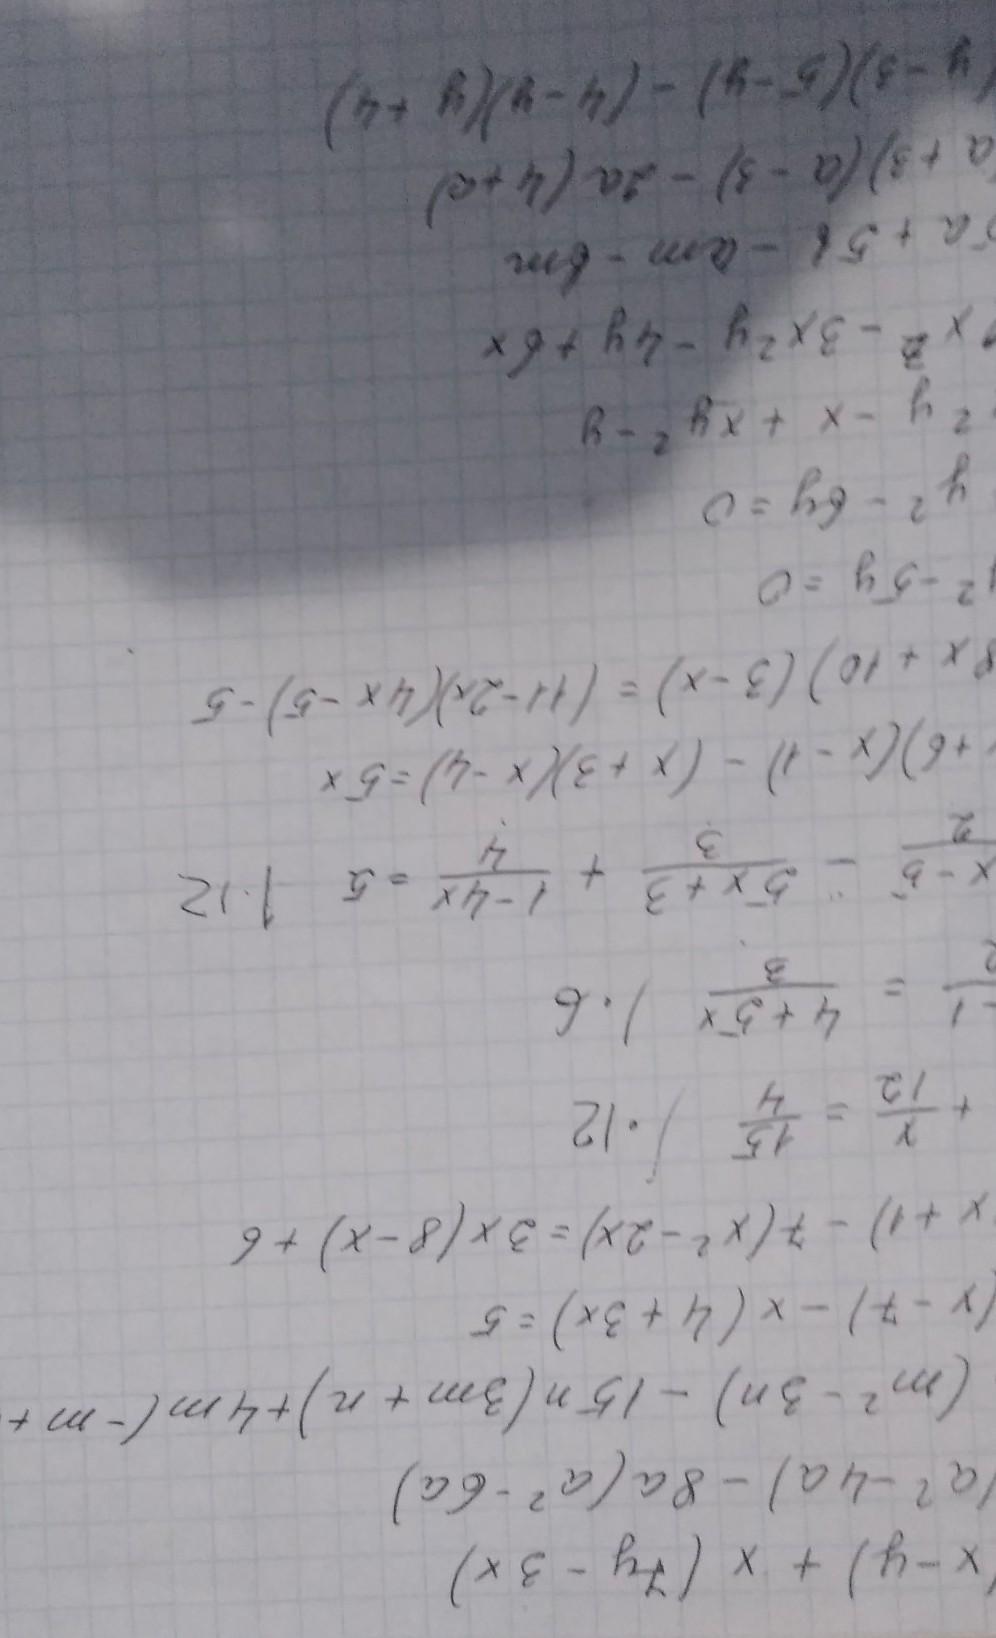 (x-y) + x (7y - 3x)
(a² - 4a) - 8a (a² - 6a)
(m² - 3n) - 15n (3m + n) + 4m (-m +
(x - 7) - x (4 + 3x) = 5
x + 1) - 7 (x² - 2x) = 3x (8 - x) + 6
+ x/12 = 15/4 | · 12
-1/2 = 4 + 5x/3 | · 6
x - 5/2 - 5x + 3/3 + 1 - 4x/4 = 5 | · 12
+ 6)(x - 1) - (x + 3)(x - 4) = 5x
8x + 10) (3 - x) = (11 - 2x)(4x - 5) - 5
y² - 5y = 0
y² - 6y = 0
²y - x + xy² - y
x² - 3x²y - 4y + 6x
5a + 5b - am - bm
(a + 3)(a - 3) - 2a (4 + a)
(y - 3)(5 - y) - (4 - y)(y + 4)